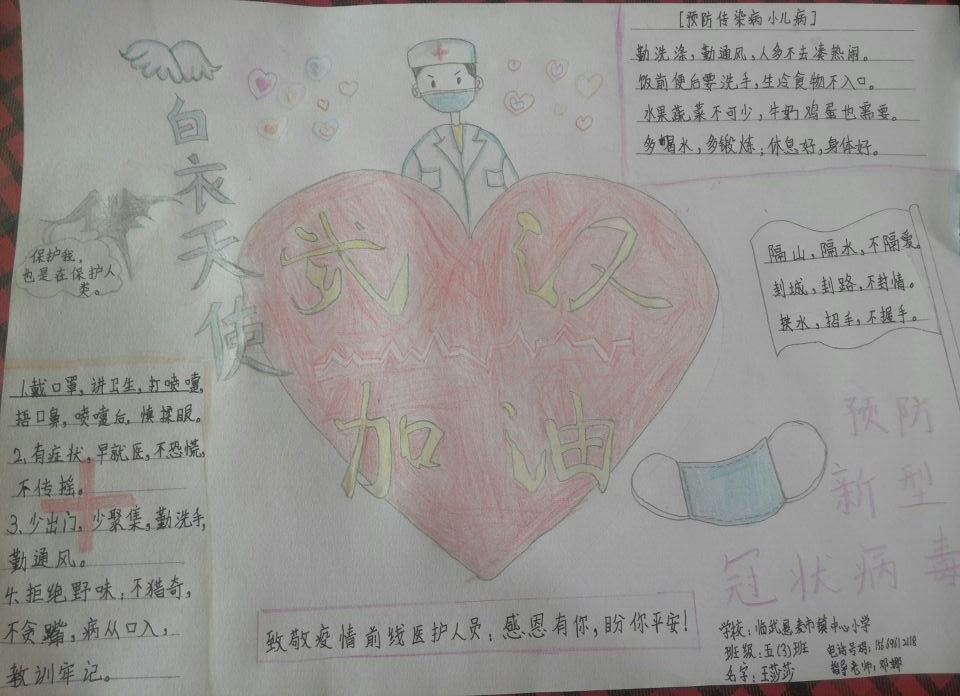 [预防传染病小儿病]
勤洗涤，勤通风，人多不去凑热闹。
饭前便后要洗手，生冷食物不入口。
水果蔬菜不可少，牛奶鸡蛋也需要。
多喝水，多锻炼；休息好，身体好。
白衣天使
保护我，
也是在保护人
类。
武汉
加油
隔山，隔水，不隔爱。
封城，封路，不封情。
招手，不握手。
1.戴口罩，讲卫生，打喷嚏，
捂口鼻，喷嚏后，慎揉眼。
2.有症状，早就医，不恐慌，
不传摇。
3.少出门，少聚集，勤洗手，
勤通风。
4.拒绝野味；不猎奇，
不贪嘴，病从口入，
教训牢记。
预防
新型
冠状病毒
致敬疫情前线医护人员；感恩有你，盼你平安！
学校：临武县麦市镇中心小学
班级：五(3)班
电话号码：
名字：王莎莎
指导老师：邓